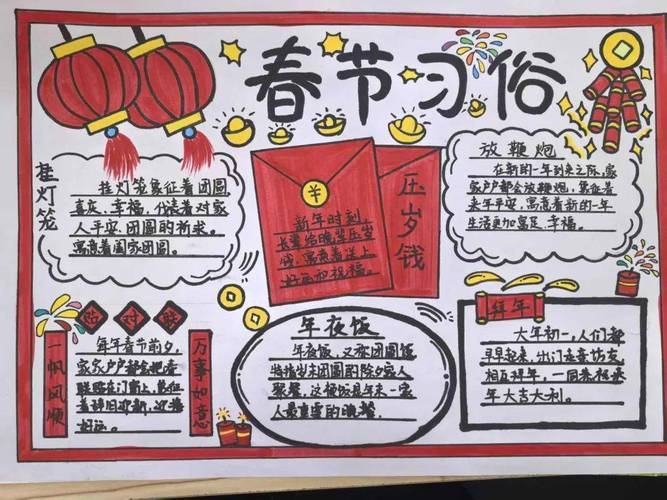 春节习俗
挂灯笼
挂灯笼象征着团圆
喜庆、幸福，代表着对家
人平安、团圆的祈求。
寓意着阖家团圆。
压岁钱
新年时刻，
长辈给晚辈压岁
钱，寓意着送上
好运和祝福。
放鞭炮
在新的一年到来之际，家
家户户都会放鞭炮，象征着
来年平安，寓意着新的一年
生活更加富足、幸福。
贴对联
一帆风顺
每年春节前夕，
家家户户都会把春
联贴在门窗上，象征
着辞旧迎新、迎接
好运。
万事如意
年夜饭
年夜饭，又称团圆饭
特指岁末团圆的除夕家人
聚餐，这顿饭是年末一家
人最重要的晚餐。
拜年
大年初一，人们都
早早起来，出门走亲访友，
相互拜年，一同恭祝来
年大吉大利。